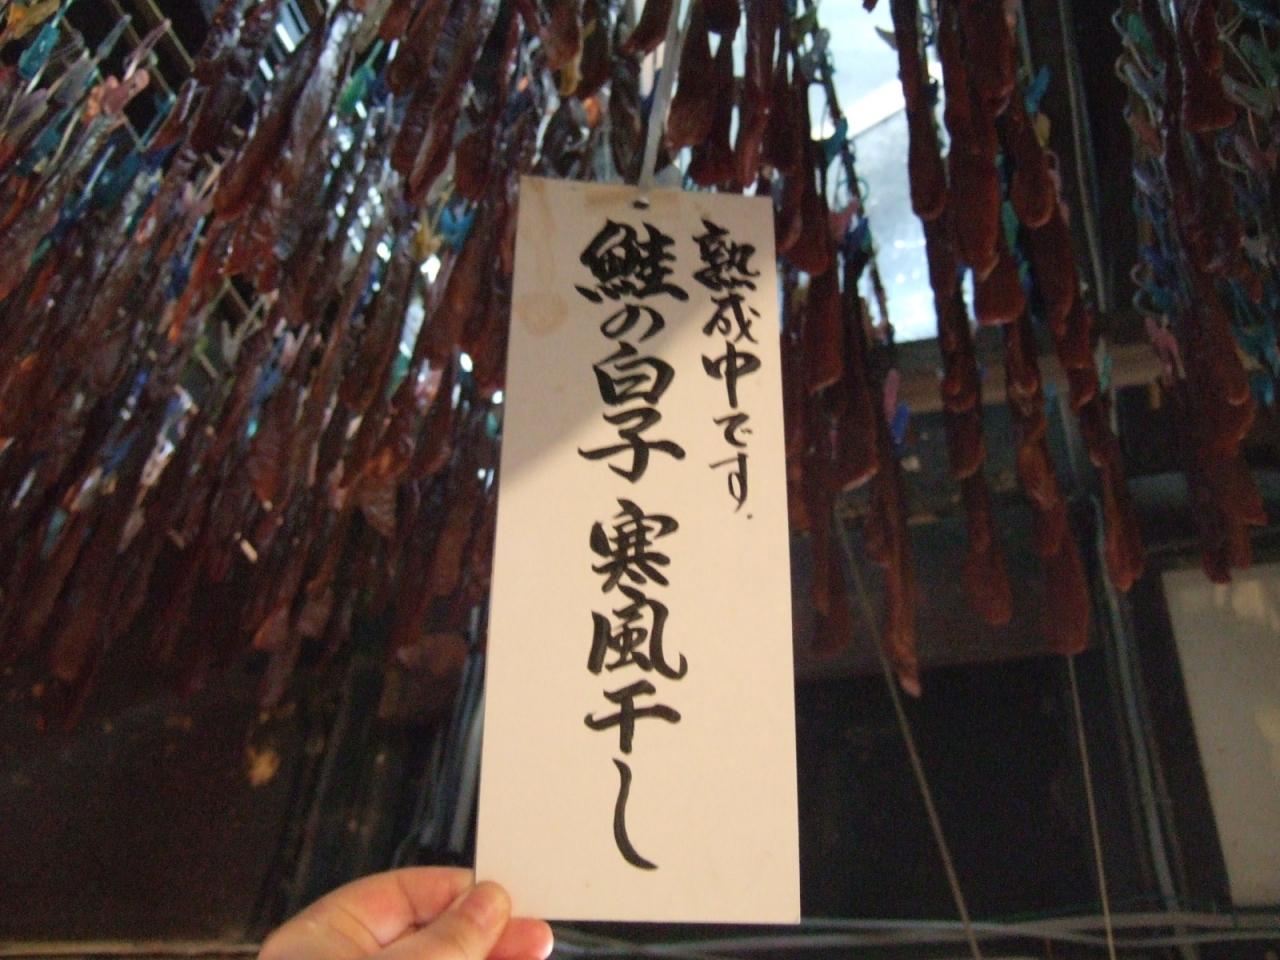 熟成中です.
鮭の白子 寒風干し